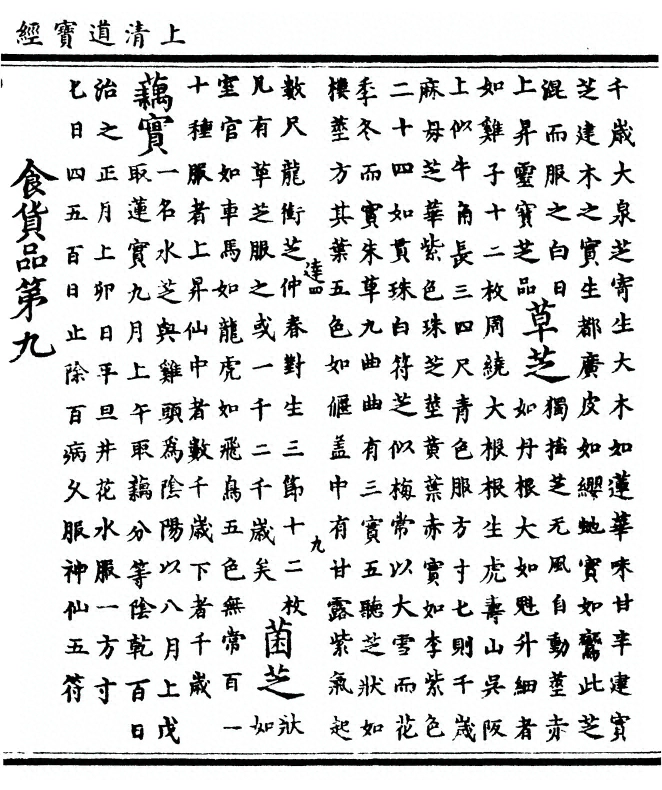 上清道寶經
千歲大泉芝寄生大木如蓮華味甘辛建寶
芝建木之寶生都廣皮如纓虵實如鸞此芝
混而服之白日 草芝 獨搖芝无風自動莖赤
上昇靈寶芝品 如丹根大如魁升細者
如雞子十二枚周繞大根根生虎壽山吳阪
上似牛角長三四尺青色服方寸七則千歲
麻母芝華紫色珠芝莖黃葉赤實如李紫色
二十四如貫珠白符芝似梅常以大雪而花
季冬而實朱草九曲曲有三實五聽芝狀如
樓莖方其葉五色如偃盖中有甘露紫氣起
達四 九
數尺龍銜芝仲春對生三節十二枚
凡有草芝服之或一千二千歲矣 菌芝 狀如
室官如車馬如龍虎如飛鳥五色無常百一
十種服者上昇仙中者數千歲下者千歲
藕實 一名水芝與雞頭為陰陽以八月上戊
取蓮實九月上午取藕分等陰乾百日
治之正月上卯日平旦井花水服一方寸
七日四五百日止除百病久服神仙五符
食貨品第九